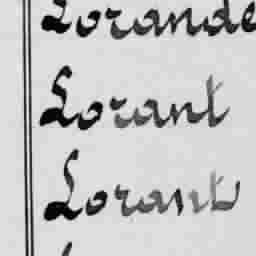 Lorande
Lorant
Lorant